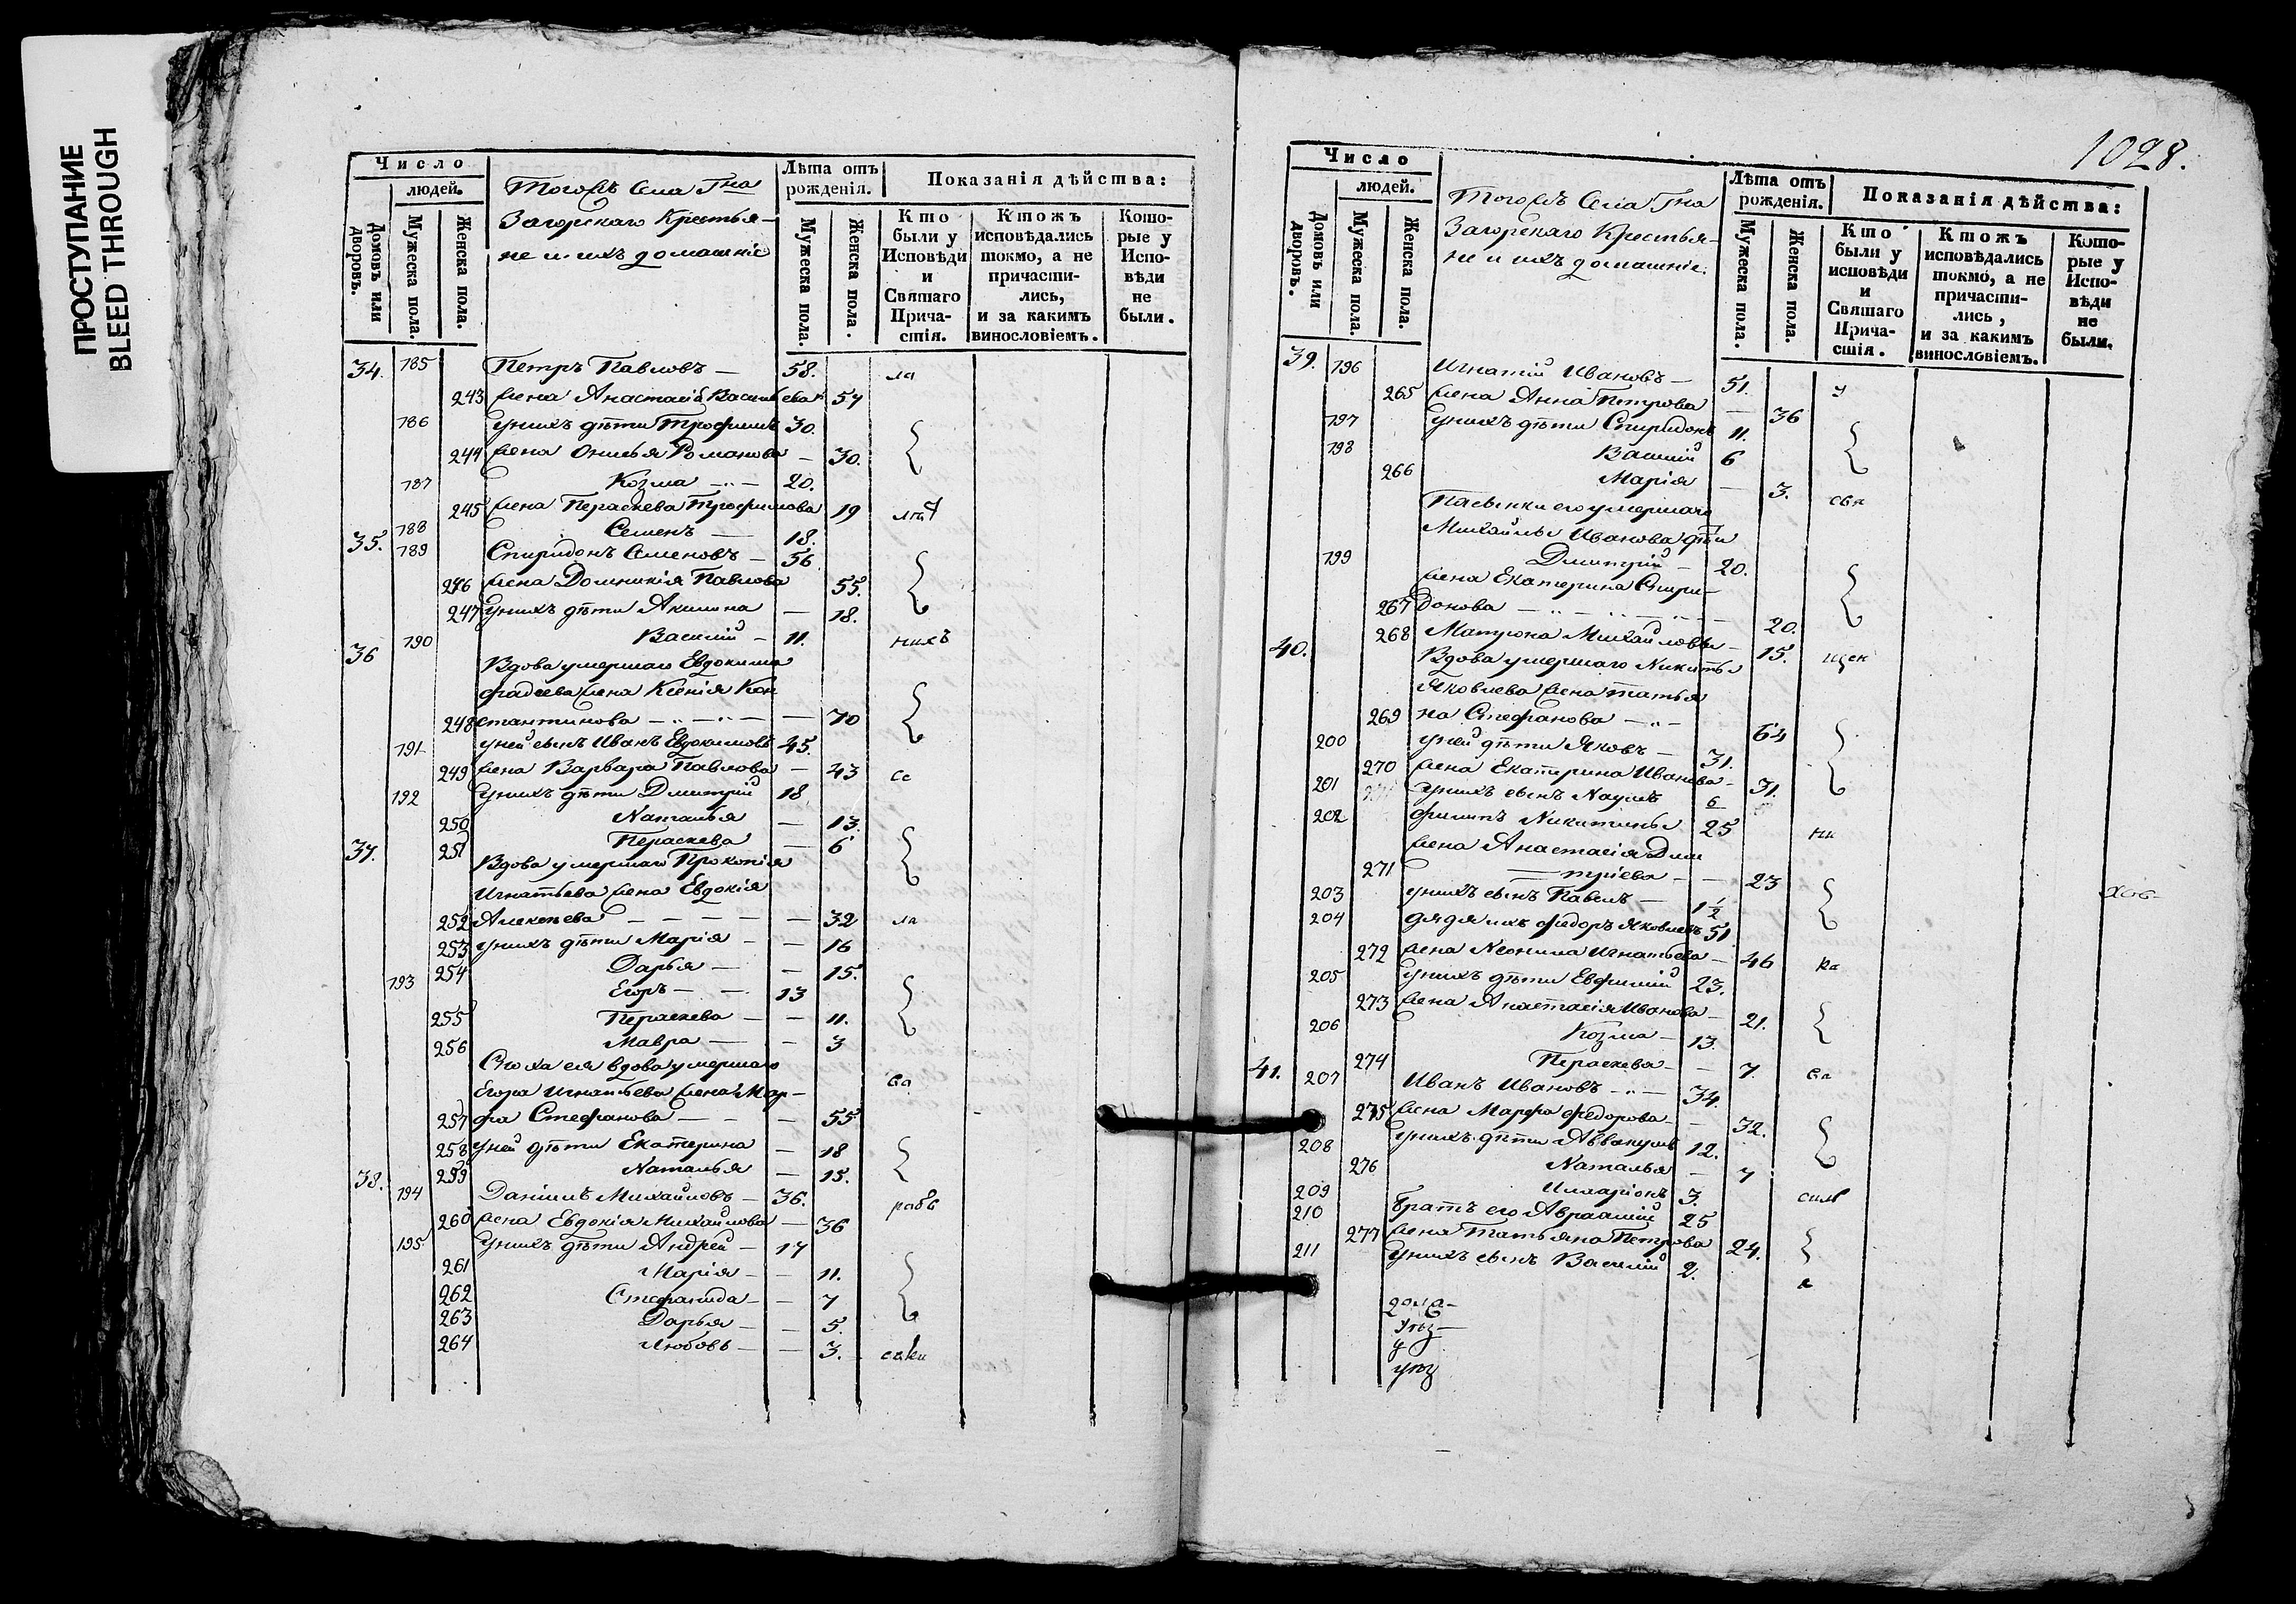 ПРОСТУПАНИЕ
BLEED THROUGH
Число
людей.
Домовъ или дворовъ.
Мужеска пола.
Женска пола.
Тогожъ Села Гна
Загорскаго Крестья-
не и ихъ домашніе
Лѣта отъ рожденія.
Мужеска пола.
Женска пола.
Показанія дѣйства:
Кто были у Исповѣди и Святаго Прича-стія.
Ктожъ исповѣдались токмо, а не причасти-лись, и за какимъ винословіемъ.
Кото-рые у Испо-вѣди не были.
34. 185 Петръ Павловъ — 58. ла
243 жена Анастасія Васильева 57
186 У нихъ дѣти Трофимъ 30.
244 жена Онисья Романова — 30.
187 Козма — 20.
245 жена Пераскева Трофимова 19
188 Семенъ — 18.
35. 189 Спиридонъ Семеновъ — 56
246 жена Домникія Павлова 55.
247 У нихъ дѣти Акилина — 18.
190 Василій — 11. нихъ
36 Вдова умершаго Евдокима
Фадѣева жена Ксенія Кон
248 стантинова — 70
191 У ней сынъ Иванъ Евдокимовъ 45.
249 жена Варвара Павлова — 43 се
192 У нихъ дѣти Димитрій 18
250 Наталья — 13.
251 Пераскева — 6
37. Вдова умершаго Прокопія
Игнатьева жена Евдокія
252 Алексѣева — 32 ла
253 У нихъ дѣти Марія — 16
254 Дарья — 15.
193 Егоръ — 13
255 Пераскева — 11.
256 Мавра — 3
Сноха ея вдова умершаго
Егора Игнатьева жена Мар- са
257 фа Стефанова — 55
258 У ней дѣти Екатерина — 18
259 Наталья — 15.
38. 194 Даніилъ Михайловъ — 36. рабѣ
260 жена Евдокія Михайлова — 36
195. У нихъ дѣти Андрей — 17
261 Марія — 11.
262 Стефанида — 7
263 Дарья — 5.
264 Любовь — 3.
1028.
Число
людей.
Домовъ или дворовъ.
Мужеска пола.
Женска пола.
Тогожъ Села Гна
Загорскаго Крестья-
не и ихъ домашніе.
Лѣта отъ рожденія.
Мужеска пола.
Женска пола.
Показанія дѣйства:
Кто были у исповѣди и Святаго Прича-стія.
Ктожъ исповѣдались токмо, а не причасти-лись, и за какимъ винословіемъ.
Кото-рые у Испо-вѣди не были.
39. 196 Игнатій Ивановъ — 51. у
265 жена Анна Петрова — 36
197 У нихъ дѣти Спиридонъ 11.
198 Василій 6
266 Марія — 3. свя
Пасынки его умершаго
Михайлы Иванова дѣти
199 Димитрій — 20.
жена Екатерина Спири-
267 донова — 20.
268 Матрона Михайловы — 15. щен
40. Вдова умершаго Никиты
Яковлева жена Татья
269 на Стефанова — 64
200 У ней дѣти Яковъ — 31.
270 жена Екатерина Иванова — 31.
201 У нихъ сынъ Наумъ 6
202 Филипъ Никитины 25 ни
жена Анастасія Дми
271 тріева — 23
203 У нихъ сынъ Павелъ — 1½
204 дядя ихъ Федоръ Яковлевъ 51
272 жена Неонила Игнатьева — 46 ка
205 У нихъ дѣти Евфимій 23.
273 жена Анастасія Иванова — 21.
206 Козма — 13.
274 Пераскева — 7. са
41. 207 Иванъ Ивановъ — 34.
275 жена Марфа Федорова — 32.
208 У нихъ дѣти Аввакумъ 12.
276 Наталья — 7
209 Илларіонъ 3.
210 братъ его Авраамій 25
277 жена Татьяна Петрова 24.
211 У нихъ сынъ Василій 2.